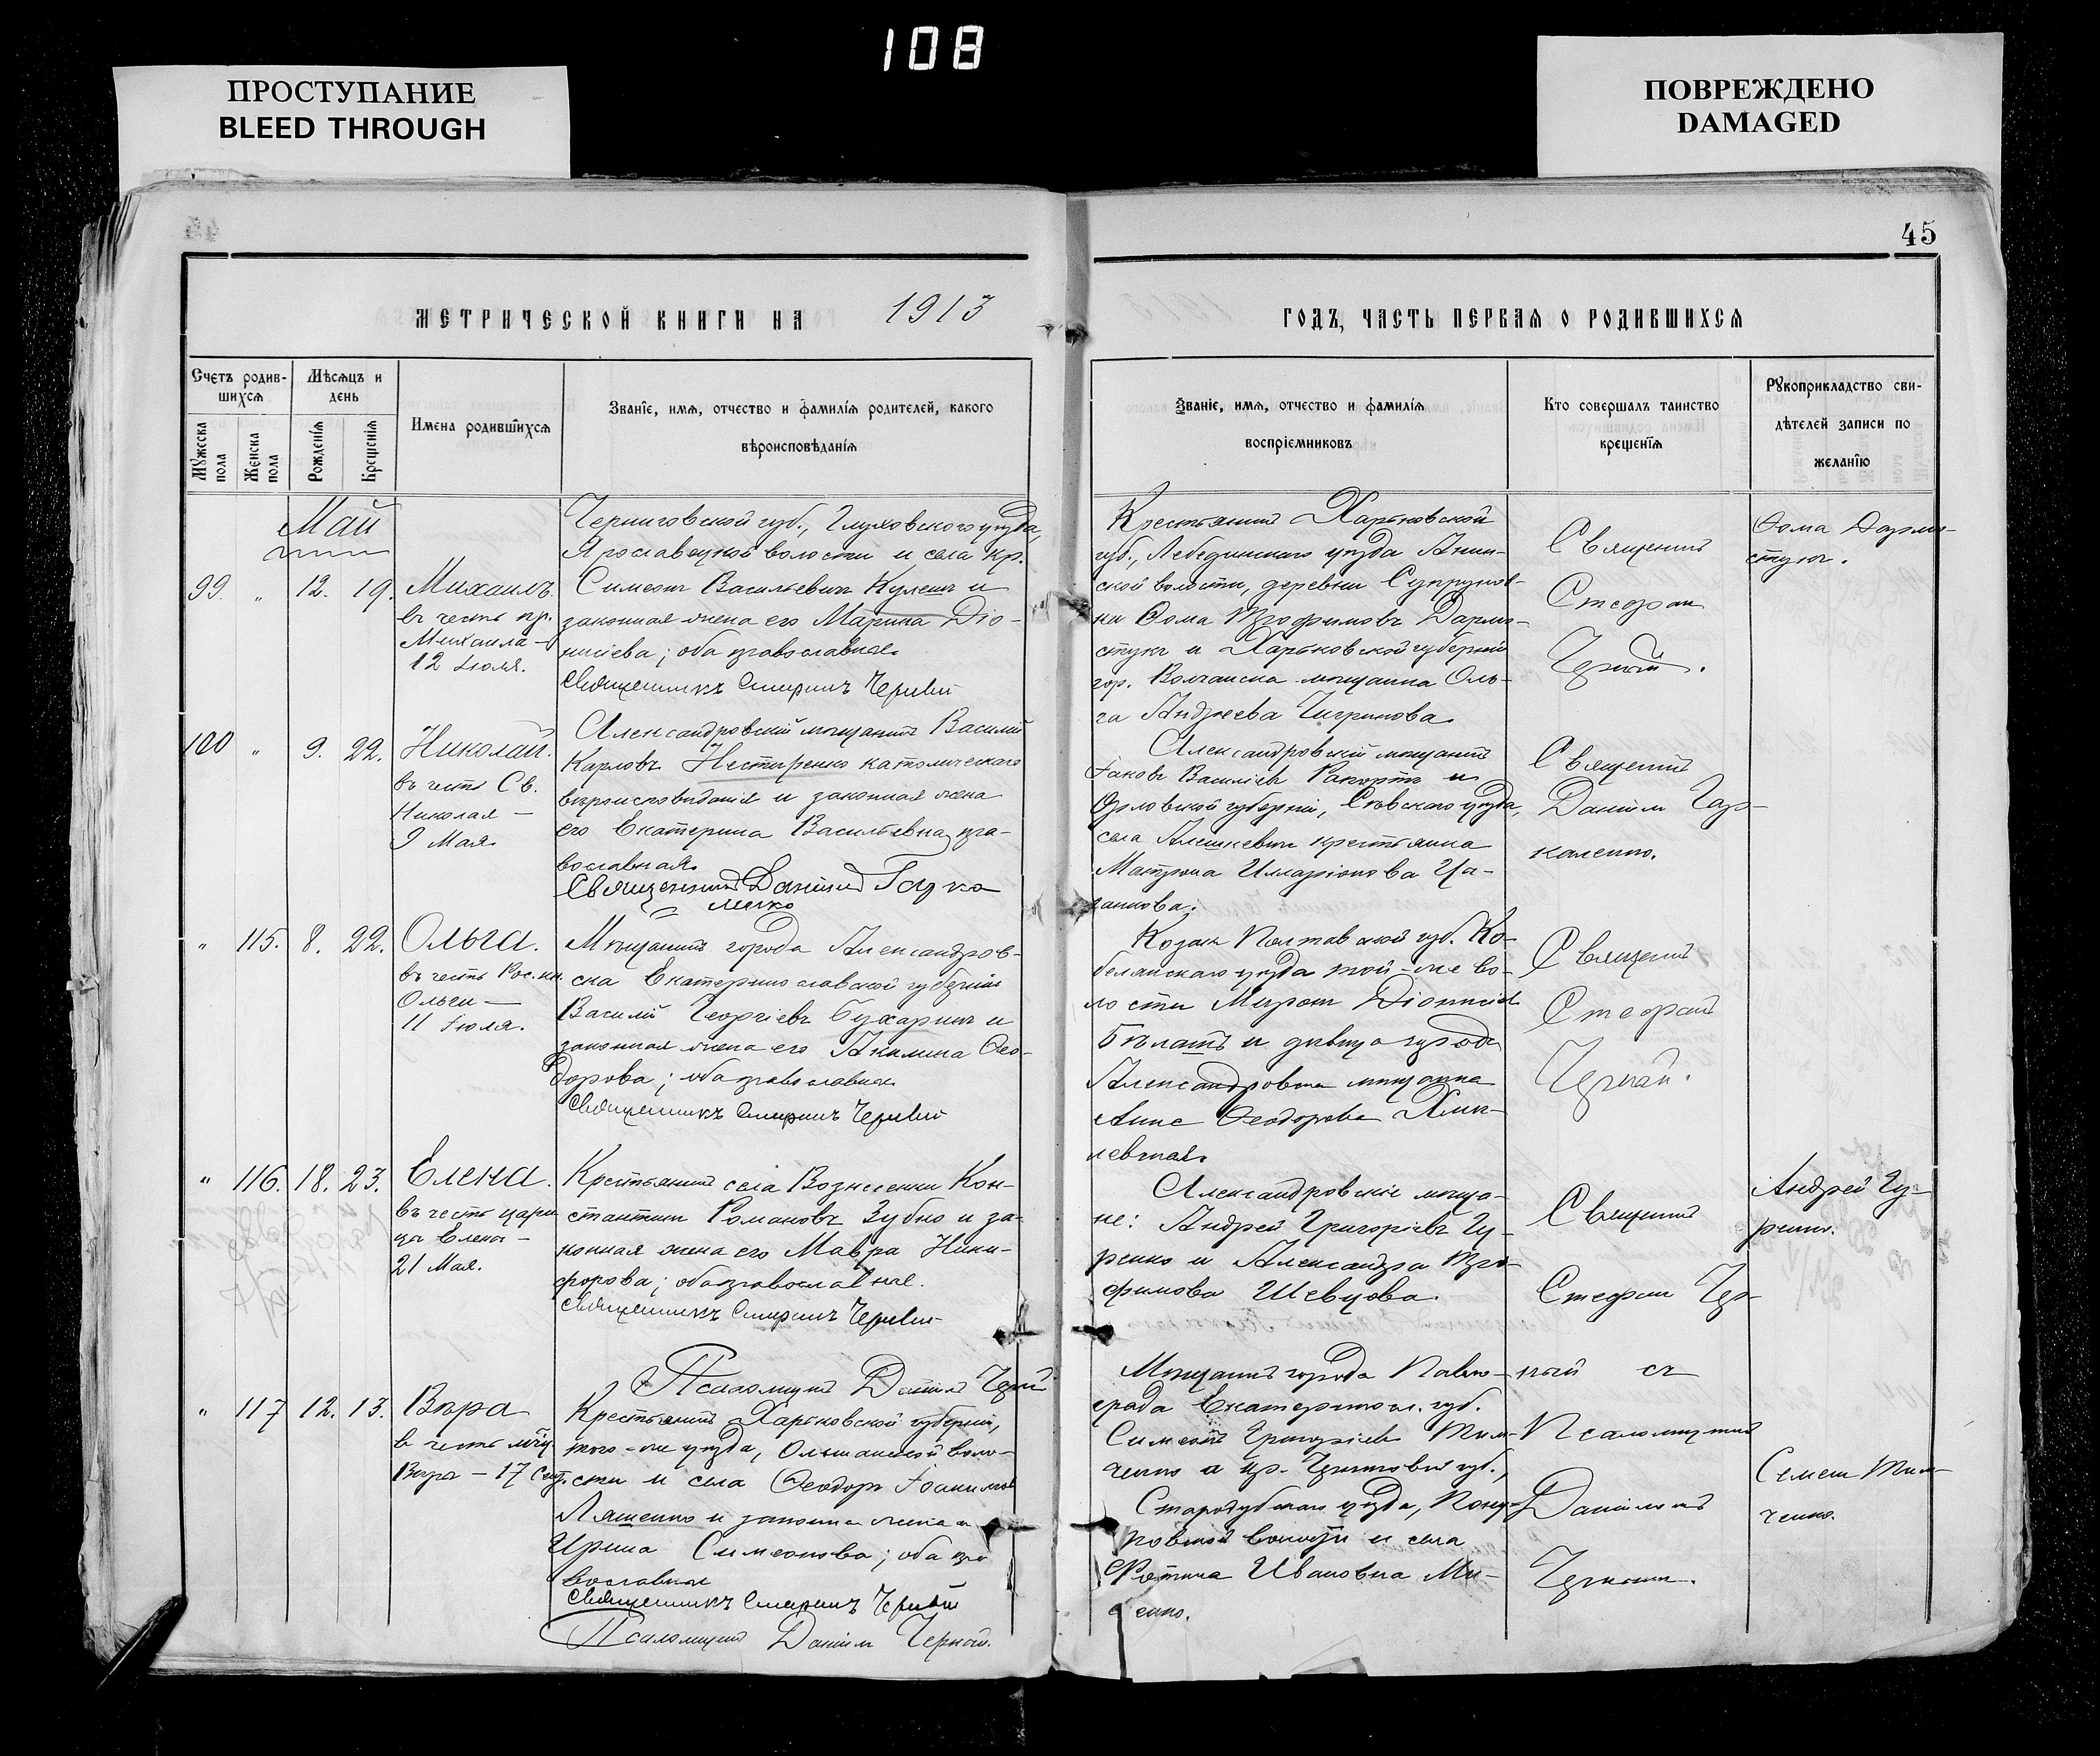 108
ПРОСТУПАНИЕ
BLEED THROUGH
ПОВРЕЖДЕНО
DAMAGED
45
МЕТРИЧЕСКОЙ КНИГИ НА 1913
ГОДЪ, ЧАСТЬ ПЕРВАЯ О РОДИВШИХСЯ
Счетъ родив-
шихся
Мѣсяцъ и
день
Мужеска
пола
Женска
пола
Рожденія
Крещенія
Имена родившихся
Званіе, имя, отчество и фамилія родителей, какого
вѣроисповѣданія
Званіе, имя, отчество и фамилія
воспріемниковъ
Кто совершалъ таинство
крещенія
Рукоприкладство сви-
дѣтелей записи по
желанію
Май
99. " 12. 19.
Михаилъ
въ честь пр.
Михаила –
12 Іюля.
Черниговской губ., Глуховского уѣзда,
Ярославецкой волости и села кр.
Симеонъ Васильевичъ Кулешъ и
законная жена его Марина Діо-
нисіева; оба православные.
Священникъ Стефанъ Черный
Крестьянинъ Харьковской
губ., Лебединскаго уѣзда Анин-
ской волости, деревни Супрунов-
ки Ѳома Трофимовъ Дарми-
стукъ и Харьковской губерніи
гор. Волчанска мѣщанка Оль-
га Андреева Чигринова.
Священникъ
Стефан
Черный.
Ѳома Дарми-
стукъ.
100 " 9. 22.
Николай.
въ честь Св.
Николая –
9 Мая.
Александровскій мѣщанинъ Василій
Карловъ Нестиренко католическаго
вѣроисповѣданія и законная жена
его Екатерина Васильевна, пра-
вославная.
Священникъ Даніилъ Гарка
ленко
Александровскій мѣщанинъ
Іаковъ Василіевъ и
Орловской губерніи, Сѣвскаго уѣзда,
села Алешкевичи крестьянка
Матрона Илларіонова Ца-
ганкова.
Священникъ
Даніилъ Гар-
каленко.
" 115. 8. 22.
Ольга.
въ честь Рос. кн.
Ольги –
11 Іюля.
Мѣщанинъ города Александров-
ска Екатеринославской губерніи
Василій Георгіевъ Бухаринъ и
законная жена его Акилина Ѳео-
дорова; оба православные.
Священникъ Стефанъ Черный
Козакъ Полтавской губ. Ко-
белякскаго уѣзда той-же во-
лости Миронъ Діонисіев
Бѣлашъ и дѣвица города
Александровска мѣщанка
Анна Ѳеодорова
Священникъ
Стефанъ
Черный.
" 116. 18. 23.
Елена.
въ честь цари
цы Елены –
21 Мая.
Крестьянинъ села Вознесенки Кон-
стантинъ Романовъ Зубко и за-
конная жена его Мавра Ники-
форова; оба православные.
Священникъ Стефанъ Черный
Псаломщикъ Даніилъ Черный
Александровскіе мѣща-
не: Андрей Григоріевъ Гу-
ренко и Александра Тро-
фимова Шевцова.
Священникъ
Стефан Чер-
ный съ
Псаломщикомъ
Даніиломъ
Чернымъ.
Андрей Гу-
ренко.
" 117 12. 13.
Вѣра
въ честь мчц.
Вѣра – 17 Сент.
Крестьянинъ Харьковской губерніи,
того-же уѣзда, Ольшанской воло-
сти и села Ѳеодоръ Іоакимов
Ляшенко и законная жена его
Ирина Симеонова; оба пра
вославные
Священникъ Стефанъ Черный
Псаломщикъ Даніилъ Черный.
Мѣщанинъ города Павло-
града Екатериносл. губ.
Симеонъ Григоріевъ Тим-
ченко и кр. Черниговской губ.,
Стародубскаго уѣзда,
волости и села
Фотина Ивановна
Семен Тим-
ченко.